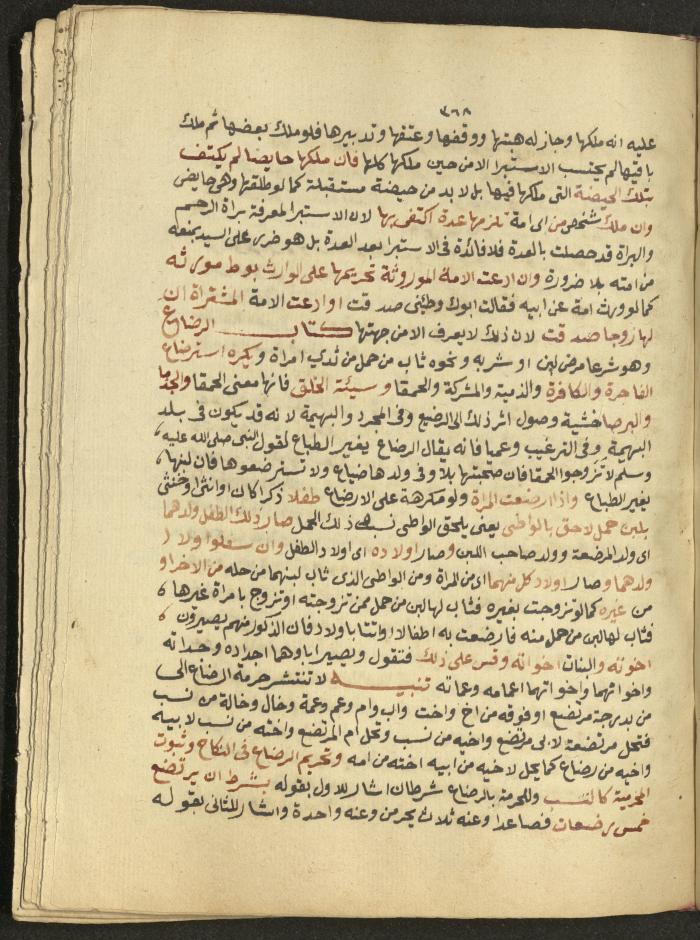 ٣٦٨
عليه انه ملكها وجاز له هبتها ووقفها وعتقها وتدبيرها فلو ملك بعضها ثم ملك
باقيها لم يحتسب الاستبرا الا من حين ملكها كلها فان ملكها حايضا لم يكتف
بتلك الحيضة التي ملكها فيها بل لا بد من حيضة مستقبلة كما لو طلقها وهي حايض
وان ملك شخص من اي امة تلزمها عدة اكتفى بها لان الاستبرا لمعرفة براة الرحم
والبراة قد حصلت بالعدة فلا فائدة في الاستبرا بعد العدة بل هو ضرر على السيد بمنعه
من امته بلا ضرورة وان ادعت الامة الموروثة تحريمها على الوارث بوطء مورثه
كما لو ورث امة عن ابيه فقالت ابوك وطئني صدقت او ادعت الامة المشتراة ان
لها زوجا صدقت لان ذلك لا يعرف الا من جهتها كتاب الرضاع
وهو شرعا مص لبن او شربه ونحوه ثاب من حمل من ثدي امراة ويكره استرضاع
الفاجرة والكافرة والذمية والمشركة والحمقا وسيئة الخلق فانها معنى الحمقا والجذما
والبرصا خشية وصول اثر ذلك الى الرضيع وفي المجرد والبهيمة لانه قد يكون في بلد
البهيمة وفي الترغيب وعميا فانه يقال الرضاع يغير الطباع لقول النبي صلى الله عليه
وسلم لا تزوجوا الحمقا فان صحبتها بلا وفي ولدها ضياع ولا تسترضعوها فان لبنها
يغير الطباع واذا ارضعت المراة ولو مكرهة على الارضاع طفلا ذكرا كان او انثى او خنثى
بلبن حمل لاحق بالواطي يعني يلحق الواطي نسب ذلك الحمل صار ذلك الطفل ولدهما
اي ولد المرضعة وولد صاحب اللبن وصار اولاده اي اولاد الطفل وان سفلوا ولا
ولدهما وصار اولاد كل منهما اي من المراة ومن الواطي الذي ثاب لبنها من حمله من الاخر او
من غيره كما لو تزوجت بغيره فثاب لها لبن من حمل ممن تزوجته او تزوج بامراة غيرها
فثاب لها لبن من حمل منه فارضعت به اطفالا او اتتا باولاد فان الذكور منهم يصيرون
اخوته والبنات اخواته وقس على ذلك فتقول ويصير اباوهما اجداده وجداته
واخواتهما واخواتهما اعمامه وعماته تنبيه لا تنتشر حرمة الرضاع الى
من بدرجة مرتضع او فوقه من اخ واخت واب وام وعم وعمة وخال وخالة من نسب
فتحل مرتضعة لابي مرتضع واخيه من نسب وتحل ام المرتضع واخته من نسب لابيه
واخيه من رضاع كما يحل لاخيه من ابيه اخته من امه وتحريم الرضاع في النكاح وثبوت
المحرمية كالنسب وللحرمة بالرضاع شرطان اشار للاول بقوله بشرط ان يرتضع
خمس رضعات فصاعدا وعنه ثلاث يحرمن وعنه واحدة واشار للثاني بقوله